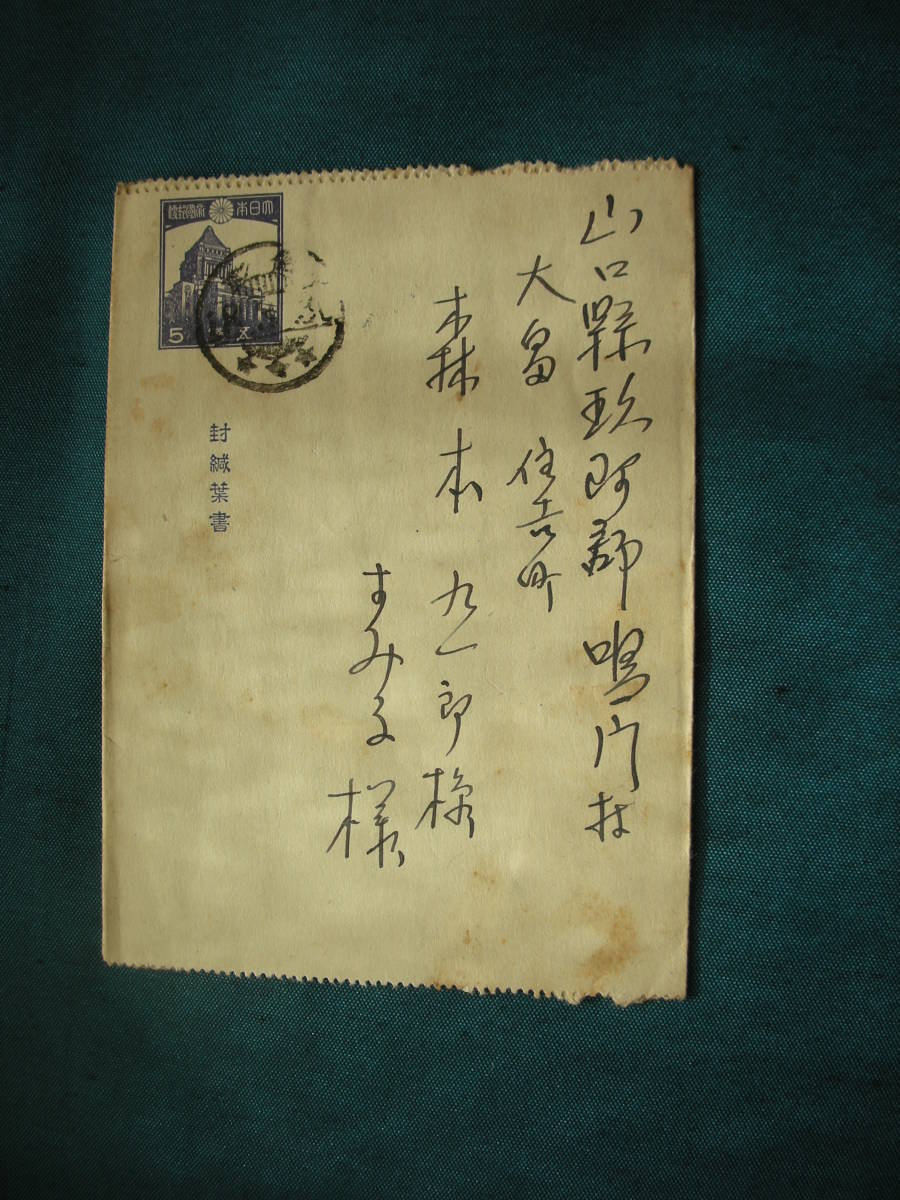 山口縣玖珂郡鳴門村
大畠 住吉町
森本 九一郎様
すみ子様
大日本帝國郵便
5 五
封緘葉書